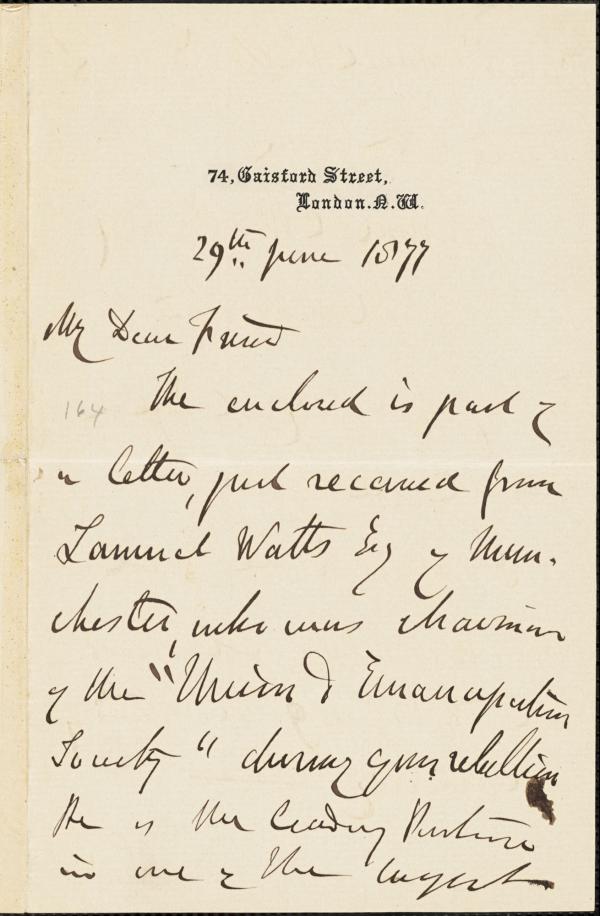 74, Gaisford Street,
London. N. W.
29th June 1877
My Dear Friend
164
The enclosed is part of
a letter, just received from
Samuel Watts Esq of Man-
chester, who was chairman
of the "Union & Emancipation
Society" during your rebellion
He is the leading Partner
in one of the largest